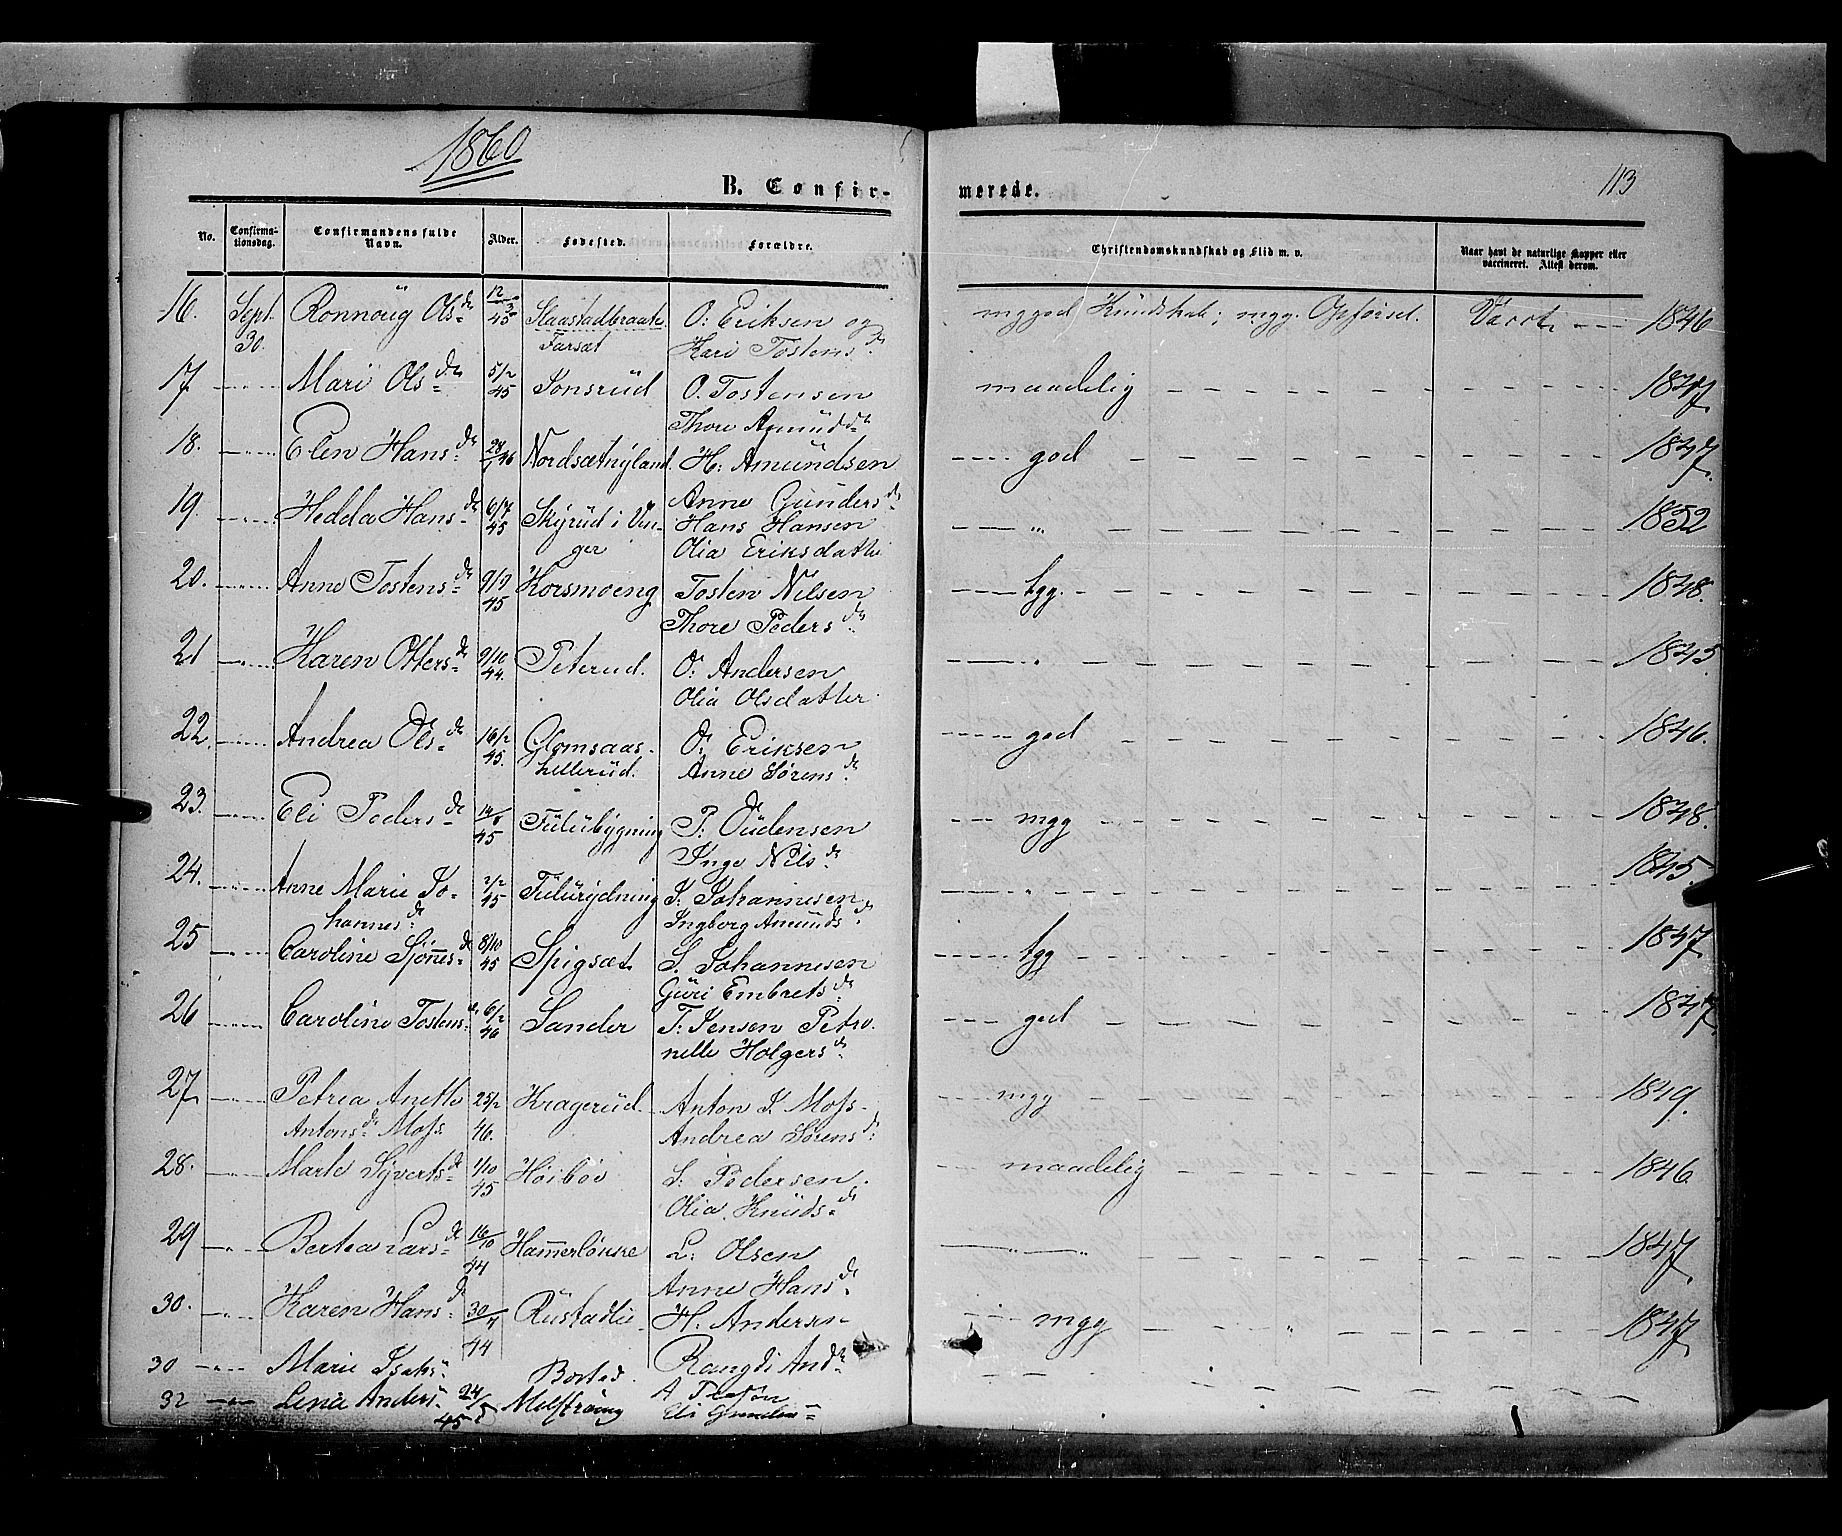 1860
113
B. Confirmerede.
No. Confirmationsdag. Confirmandens fulde Navn. Alder. Fødested. Forældre. Christendomskundskab og Flid m. v. Naar havt de naturlige Kopper eller vaccineret. Attest derom.
16. Sept. 30. Ronnoug Olsdr 12/3 45 Slaastadbraate Farsæt O: Eriksen og Kari Tostensdr mggod Kundskab; mgg. Opførsel. Vacct. 1846
17 Mari Olsdr 5/2 45 Sonsrud O. Tostensen Thore Amundsdr maadelig 1847.
18. Elen Hansdr 46 Nordsætnyland H: Amundsen Anne Gundersdr god 1847.
19. Hedda Hansdr 6/7 45 Skyrud i Vinger Hans Hansen Olia Eriksdatter " 1852
20. Anne Tostensdr 9/9 45 Korsmoeng Tosten Nilsen Thore Pedersdr tgg. 1848.
21 Karen Ottersdr 9/10 44. Peterud. O: Andersen Olia Olsdatter " 1845
22. Andrea Olsdr 16/2 45. Glomsaashellerud. O: Eriksen Anne Sørensdr god 1846.
23. Eli Pedersdr 45 Fulubygning P: Oudensen Inge Nilsdr mgg 1848.
24. Anne Marie Johannesdr 2/2 45 Fulurydning J. Johannesen Ingborg Amundsdr " 1845
25 Caroline Sjønnesdr 8/10 45 Spigsæt S. Johannesen Guri Embretsdr tgg 1847
26 Caroline Tostensdr 6/2 46 Sander T: Jensen Petronelle Holgersdr god 1847.
27 Petrea Anette Antonsdr Moss. 25/2 46. Kragerud Anton J. Moss. Andrea Sørensdr mgg 1849.
28. Marte Syvertsdr 1/10 45 Høibøe S. Pedersen. Olia Knudsdr maadelig 1846.
29 Bertea Larsdr 16/10 44 L: Olsen Anne Hansdr " " 1847.
30. Karen Hansdr 44 Rustadlie H. Andersen mgg " 1847.
30 Marie Isaks Borted. Rangdi Andr
32 Lina Anders 24/ 45 A